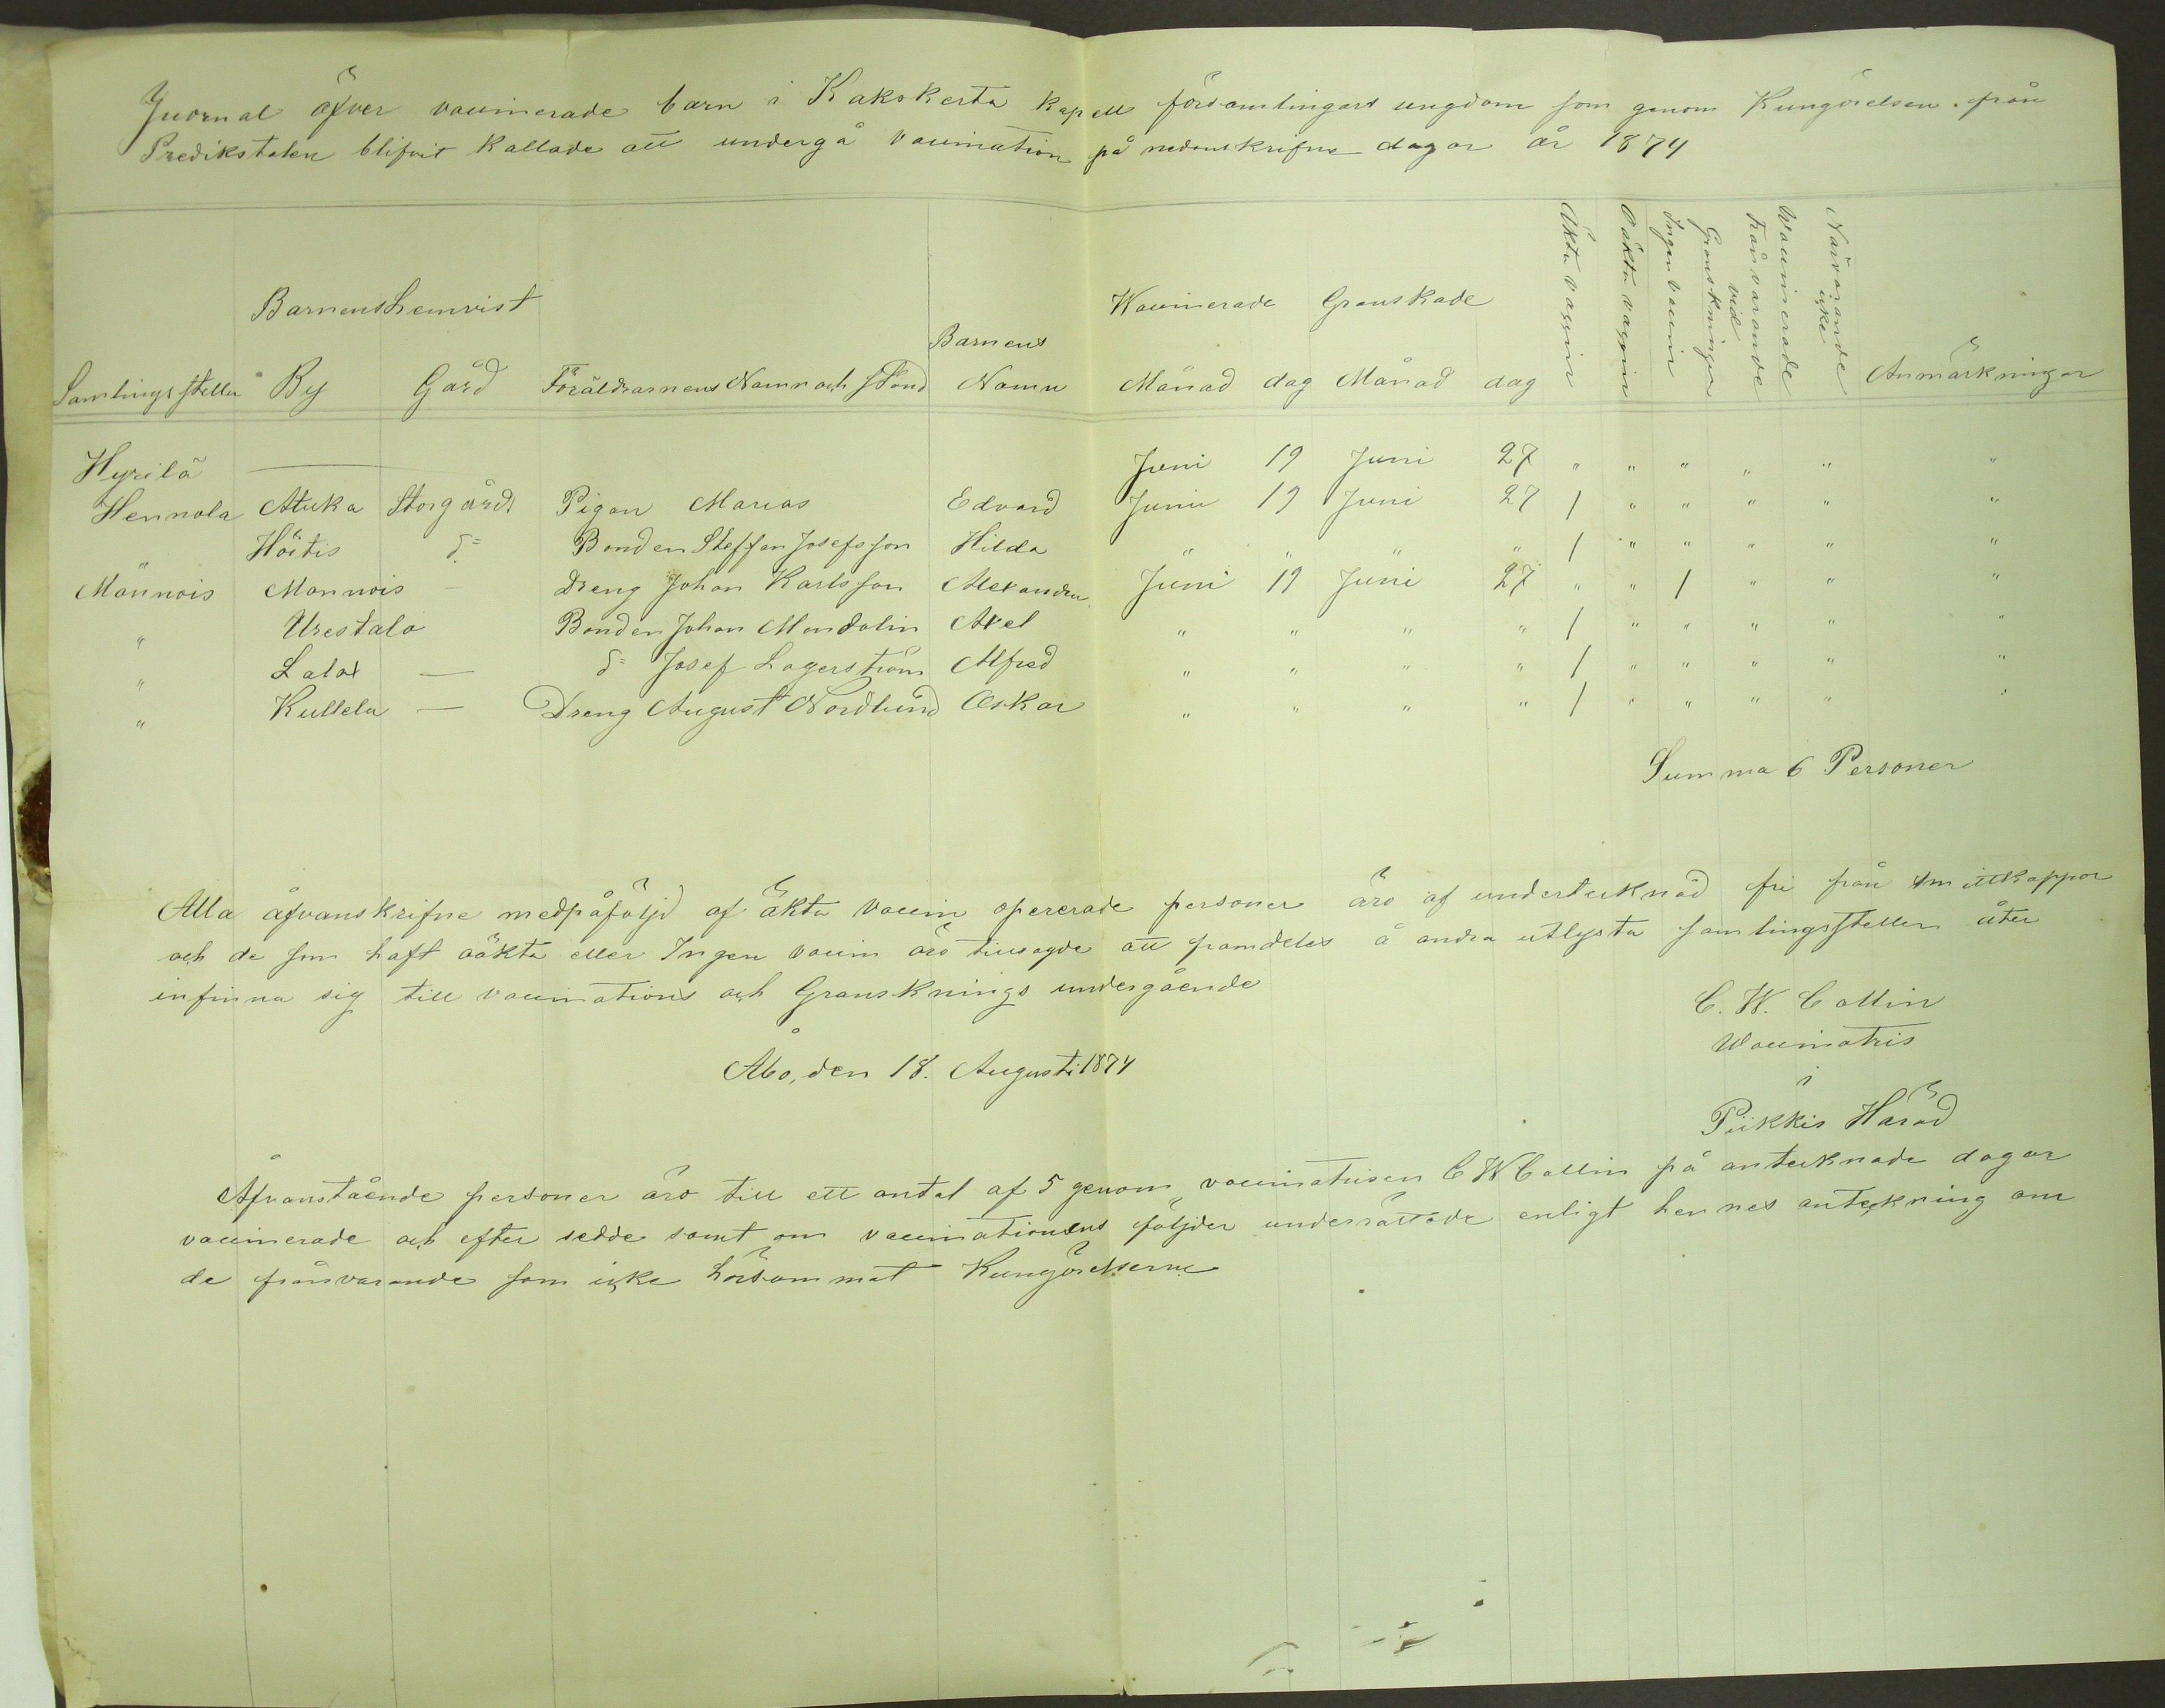 Juornal öfver vaccinerade barn i Kakskerta kapell församlingars ungdom som genom Kungörelsen från
Predikstolen blifvit kallade att undergå vaccination på nedanskrifne dagar år 1874
Barnens hemvist Waccinerade Granskade Äkta vaccin Oäkta vaccin Ingen vaccin Frånvarande vid Granskningen Närvarande icke Waccinerade
Samlingsställen By Gård Föräldrarnens Namn och stånd Barnens Namn Månad dag Månad dag Anmärkningar
Hyrilä — Juni 19 Juni 27 " " " " " "
Hennola Atuka Storgårds Pigan Marias Edvard Junie 19 Juni 27 1 " " " " "
Höitis d:o Bonden Steffan Josefsson Hilda " " " " 1 " " " " "
Männois Mannois — Dreng Johan Karlsson Alexandra Juni 19 Juni 27 " " 1 " " "
" Urestalo Bonden Johan Mandalin Axel " " " " 1 " " " " "
" Lalax — d:o Josef Lagerström Alfred " " " " 1 " " " " "
" Kullela — Dreng August Nordlund Oskar " " " " 1 " " " " "
Summa 6 Personer
Alla åfvanskrifne medpåföljd af äkta vaccin opererade personer äro af undertecknad fri från smittkoppor
och de som haft oäkta eller Ingen vaccin äro tillsagde att framdeles å andra utlysta samlingsställen åter
infinna sig till vaccinations och Gransknings undergående
C. W. Collin
Waccinatris
i
Piikkis Härad
Åbo, den 18. Augusti 1874
Åfvanstående personer äro till ett antal af 5 genom vaccinatrisen C W Collin på antecknade dagar
vaccinerade och efter sedde samt om vaccinationens följder underrättade enligt hennes anteckning om
de frånvarande som icke hörsammat Kungörelserne